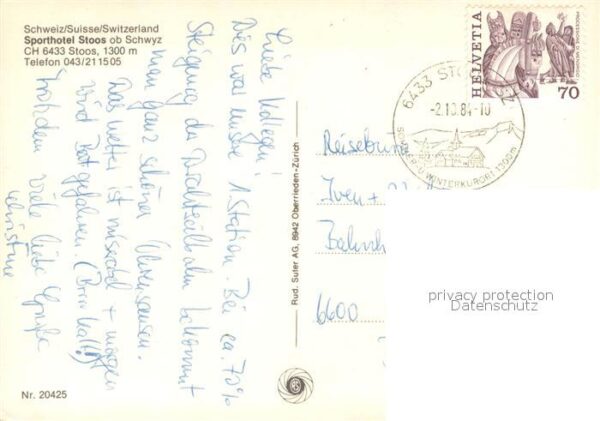 Schweiz/Suisse/Switzerland
Sporthotel Stoos ob Schwyz
CH 6433 Stoos, 1300 m
Telefon 043/21 15 05
Liebe Kollegen!
Dies war unsere 1. Station. Bei ca. 70%
Steigung der Drahtseilbahn bekommt
man ganz schönes Ohrensausen.
Das Wetter ist miserabel + morgen
wird Rad gefahren. (Brr kalt!)
Trotzdem viele liebe Grüße
Christine
Nr. 20425
Rud. Suter AG, 8942 Oberrieden-Zürich
HELVETIA
PROCESSIONE DI MENDRISIO
70
6433 STOOS
-2.10.84-10
SOMMER U. WINTERKURORT 1300m
Reisebüro
Iven +
Bahnh
6600
privacy protection
Datenschutz